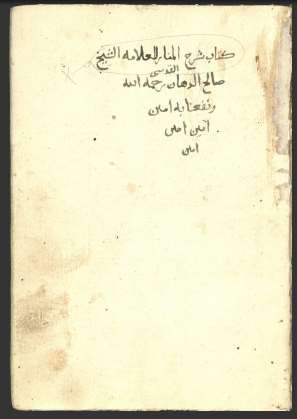 كتاب شرح المنار للعلامه الشيخ
القدسي
صالح الدهان رحمه الله
ونفعنا به امين
امين امين
امين